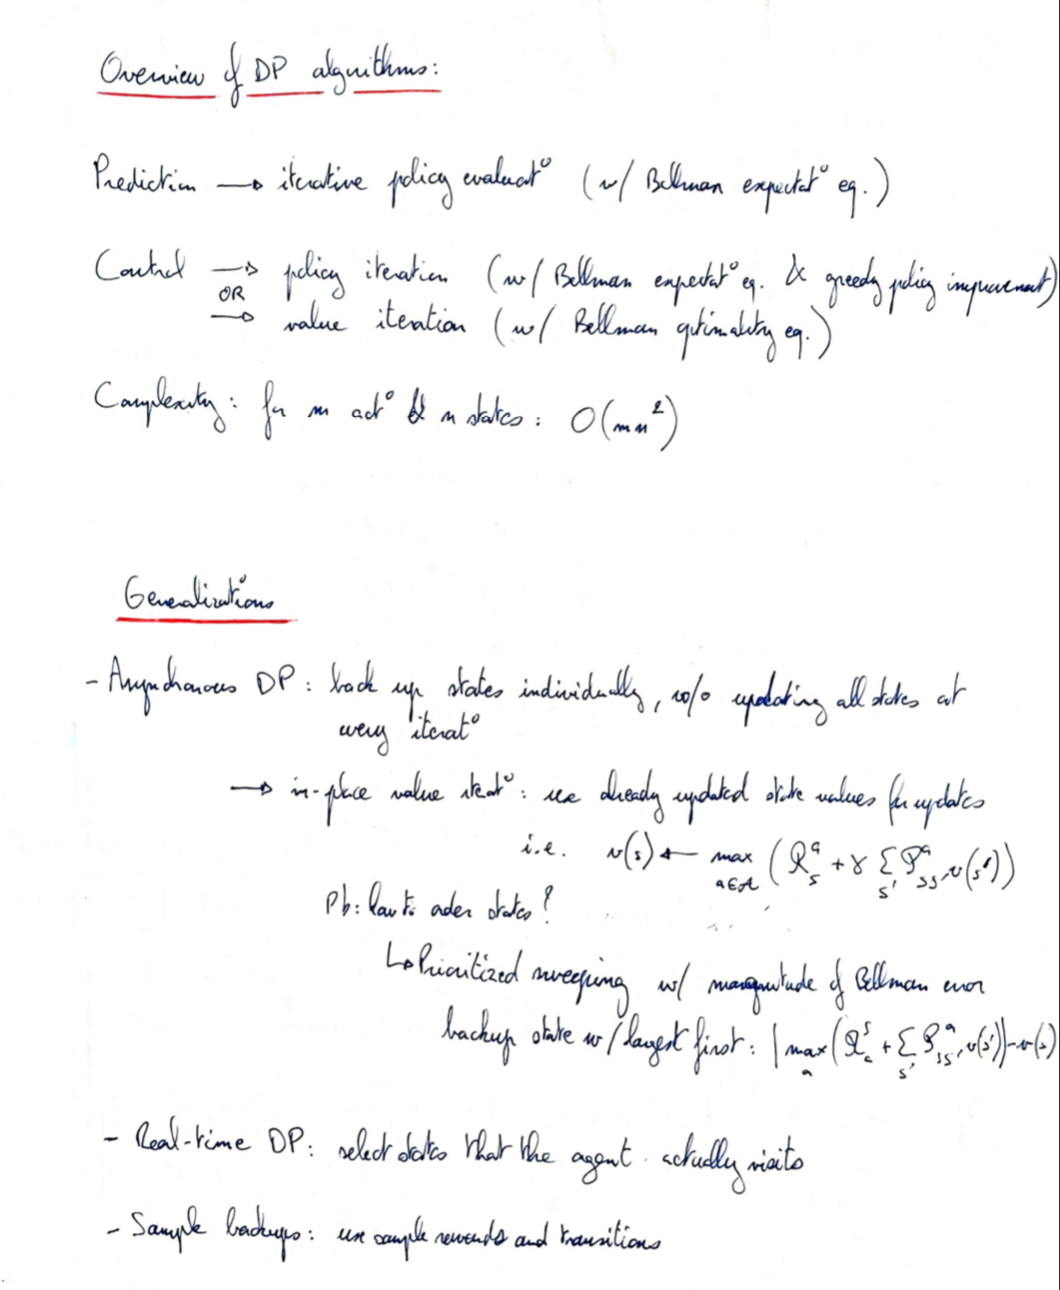 Overview of DP algorithms:
Prediction → iterative policy evaluat° (w/ Bellman expectat° eq.)
Control → policy iteration (w/ Bellman expectat° eq. & greedy policy improvement)
OR
→ value iteration (w/ Bellman optimality eq.)
Complexity: for m act° & n states: O(mn²)
Generalizations
- Asynchronous DP: back up states individually, w/o updating all states at
every iterat°
→ in-place value iterat°: use already updated state values for updates
i.e. v(s) ← max_{a∈A} (R_s^a + γ Σ_{s'} P_{ss'}^a v(s'))
Pb: how to order states?
↳ Prioritized sweeping w/ magnitude of Bellman error
backup state w/ largest first: | max_a (R_a^s + Σ_{s'} P_{ss'}^a v(s')) - v(s)
- Real-time DP: select states that the agent actually visits
- Sample backups: use sample rewards and transitions